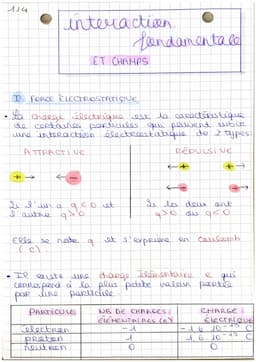 1/4
interaction
fondamentale
ET CHAMPS
I FORCE ÉLECTROSTATIQUE
• La charge électrique est la caractéristique
de certaines particules qui peuvent subir
une interaction électrostatique de 2 types:
ATTRACTIVE RÉPULSIVE
+ -
+ +
- -
Si l'un a q<0 et
l'autre q>0
Si les deux ont
q>0 ou q<0
Elle se note q et s'exprime en coulomb
(C)
• Il existe une charge élémentaire e qui
correspond à la plus petite valeur portée
par une particule
PARTICULES NB DE CHARGES ÉLÉMENTAIRES (e) CHARGE ÉLECTRIQUE
électron -1 -1,6 10⁻¹⁹ C
proton 1 1,6 10⁻¹⁹ C
neutron 0 0